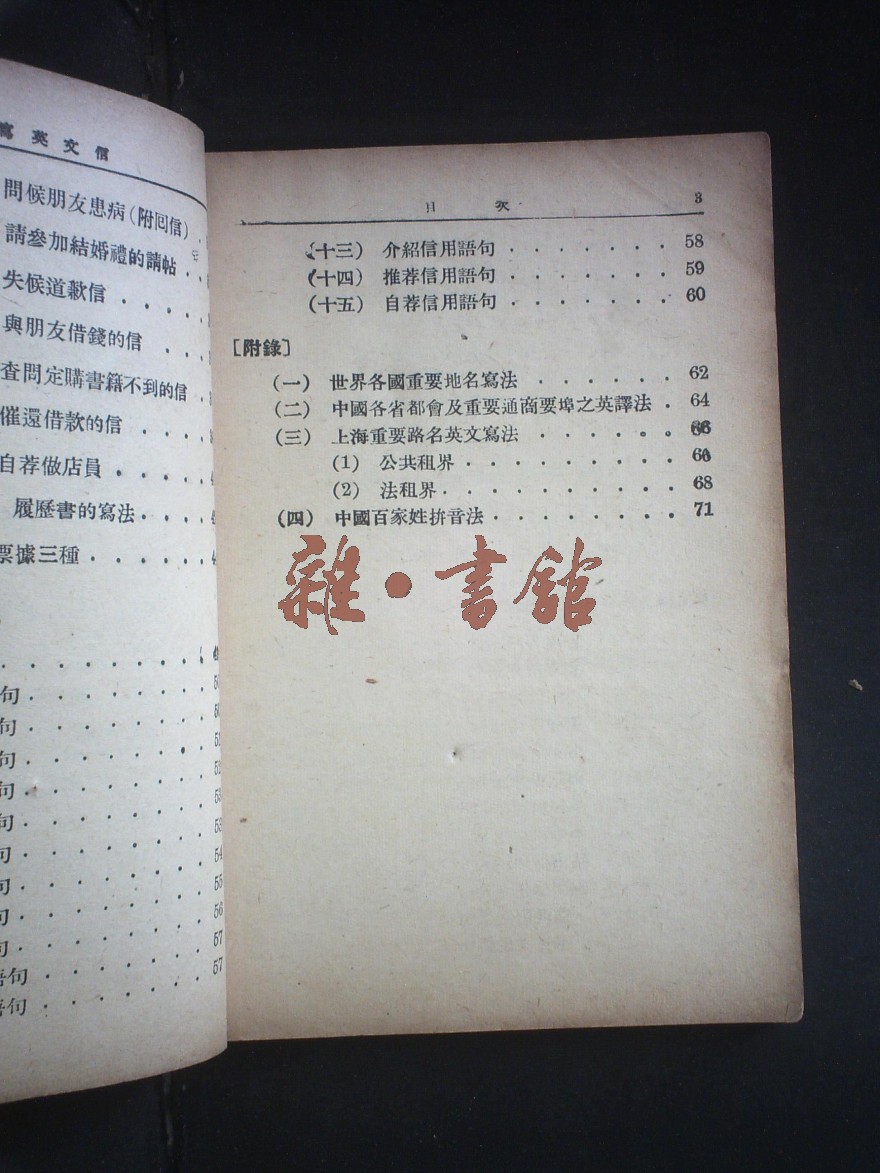 寫英文信
問候朋友患病(附囘信)
請參加結婚禮的請帖
失候道歉信
與朋友借錢的信
查問定購書籍不到的信
催還借款的信
自荐做店員
履歷書的寫法
票據三種
句
句 50
句 51
句 52
句 53
句 53
句 54
句 55
句 56
句 57
語句 57
語句
目次 3
(十三) 介紹信用語句 58
(十四) 推荐信用語句 59
(十五) 自荐信用語句 60
[附錄]
(一) 世界各國重要地名寫法 62
(二) 中國各省都會及重要通商要埠之英譯法 64
(三) 上海重要路名英文寫法 66
(1) 公共租界
(2) 法租界 68
(四) 中國百家姓拚音法 71
雜·書館